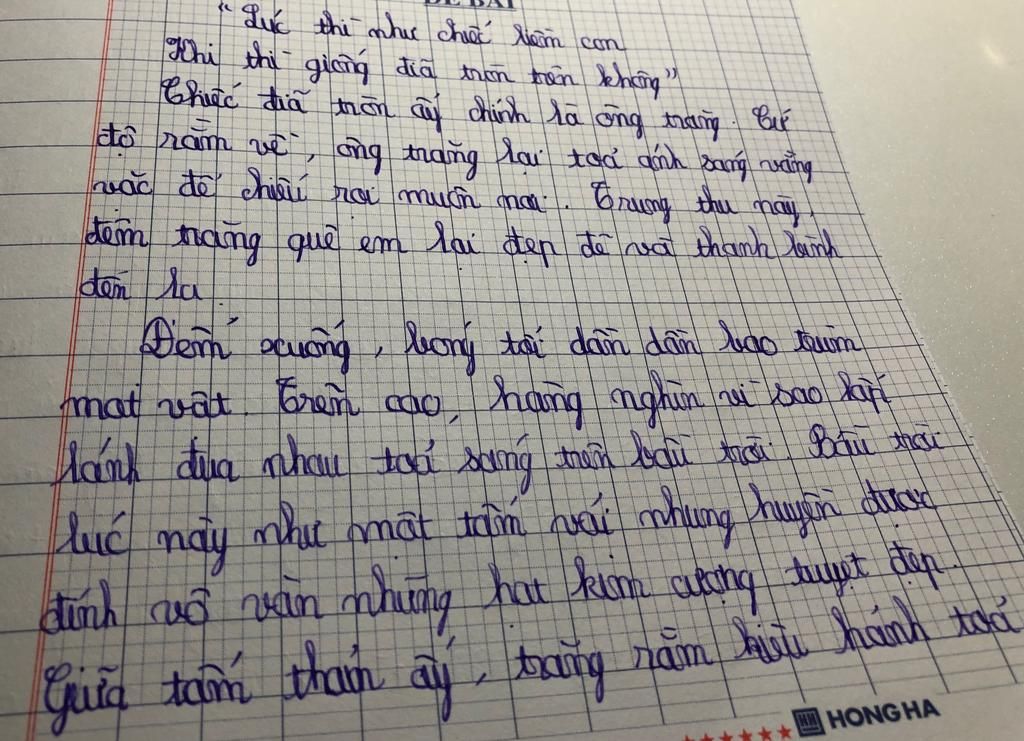 ĐỀ BÀI
"Lúc thì như chiếc liềm con
Khi thì giống đĩa tròn trên không"
Chiếc đĩa tròn ấy chính là ông trăng. Cứ
độ rằm về, ông trăng lại toả ánh sáng vằng
vặc để chiếu rọi muôn nơi. Trung thu này,
đêm trăng quê em lại đẹp đẽ và thanh lành
đến lạ.
Đêm xuống, bóng tối dần dần bao trùm
mọi vật. Trên cao, hàng nghìn vì sao lấp
lánh đua nhau toả sáng trên bầu trời. Bầu trời
lúc này như một tấm vải nhung huyền được
đính vô vàn những hạt kim cương tuyệt đẹp.
Giữa tấm thảm ấy, trăng rằm hiền lành toả
HONG HA